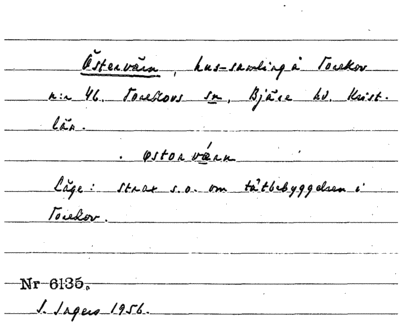 Östervärn, hus-samling å Torekov
n:r 46. Torekovs sn, Bjäre hd. Krist.
län.
. østərvæ̣rn
Läge: strax s.o. om tätbebyggelsen i
Torekov.
Nr 6135.
S. Ingers 1956.